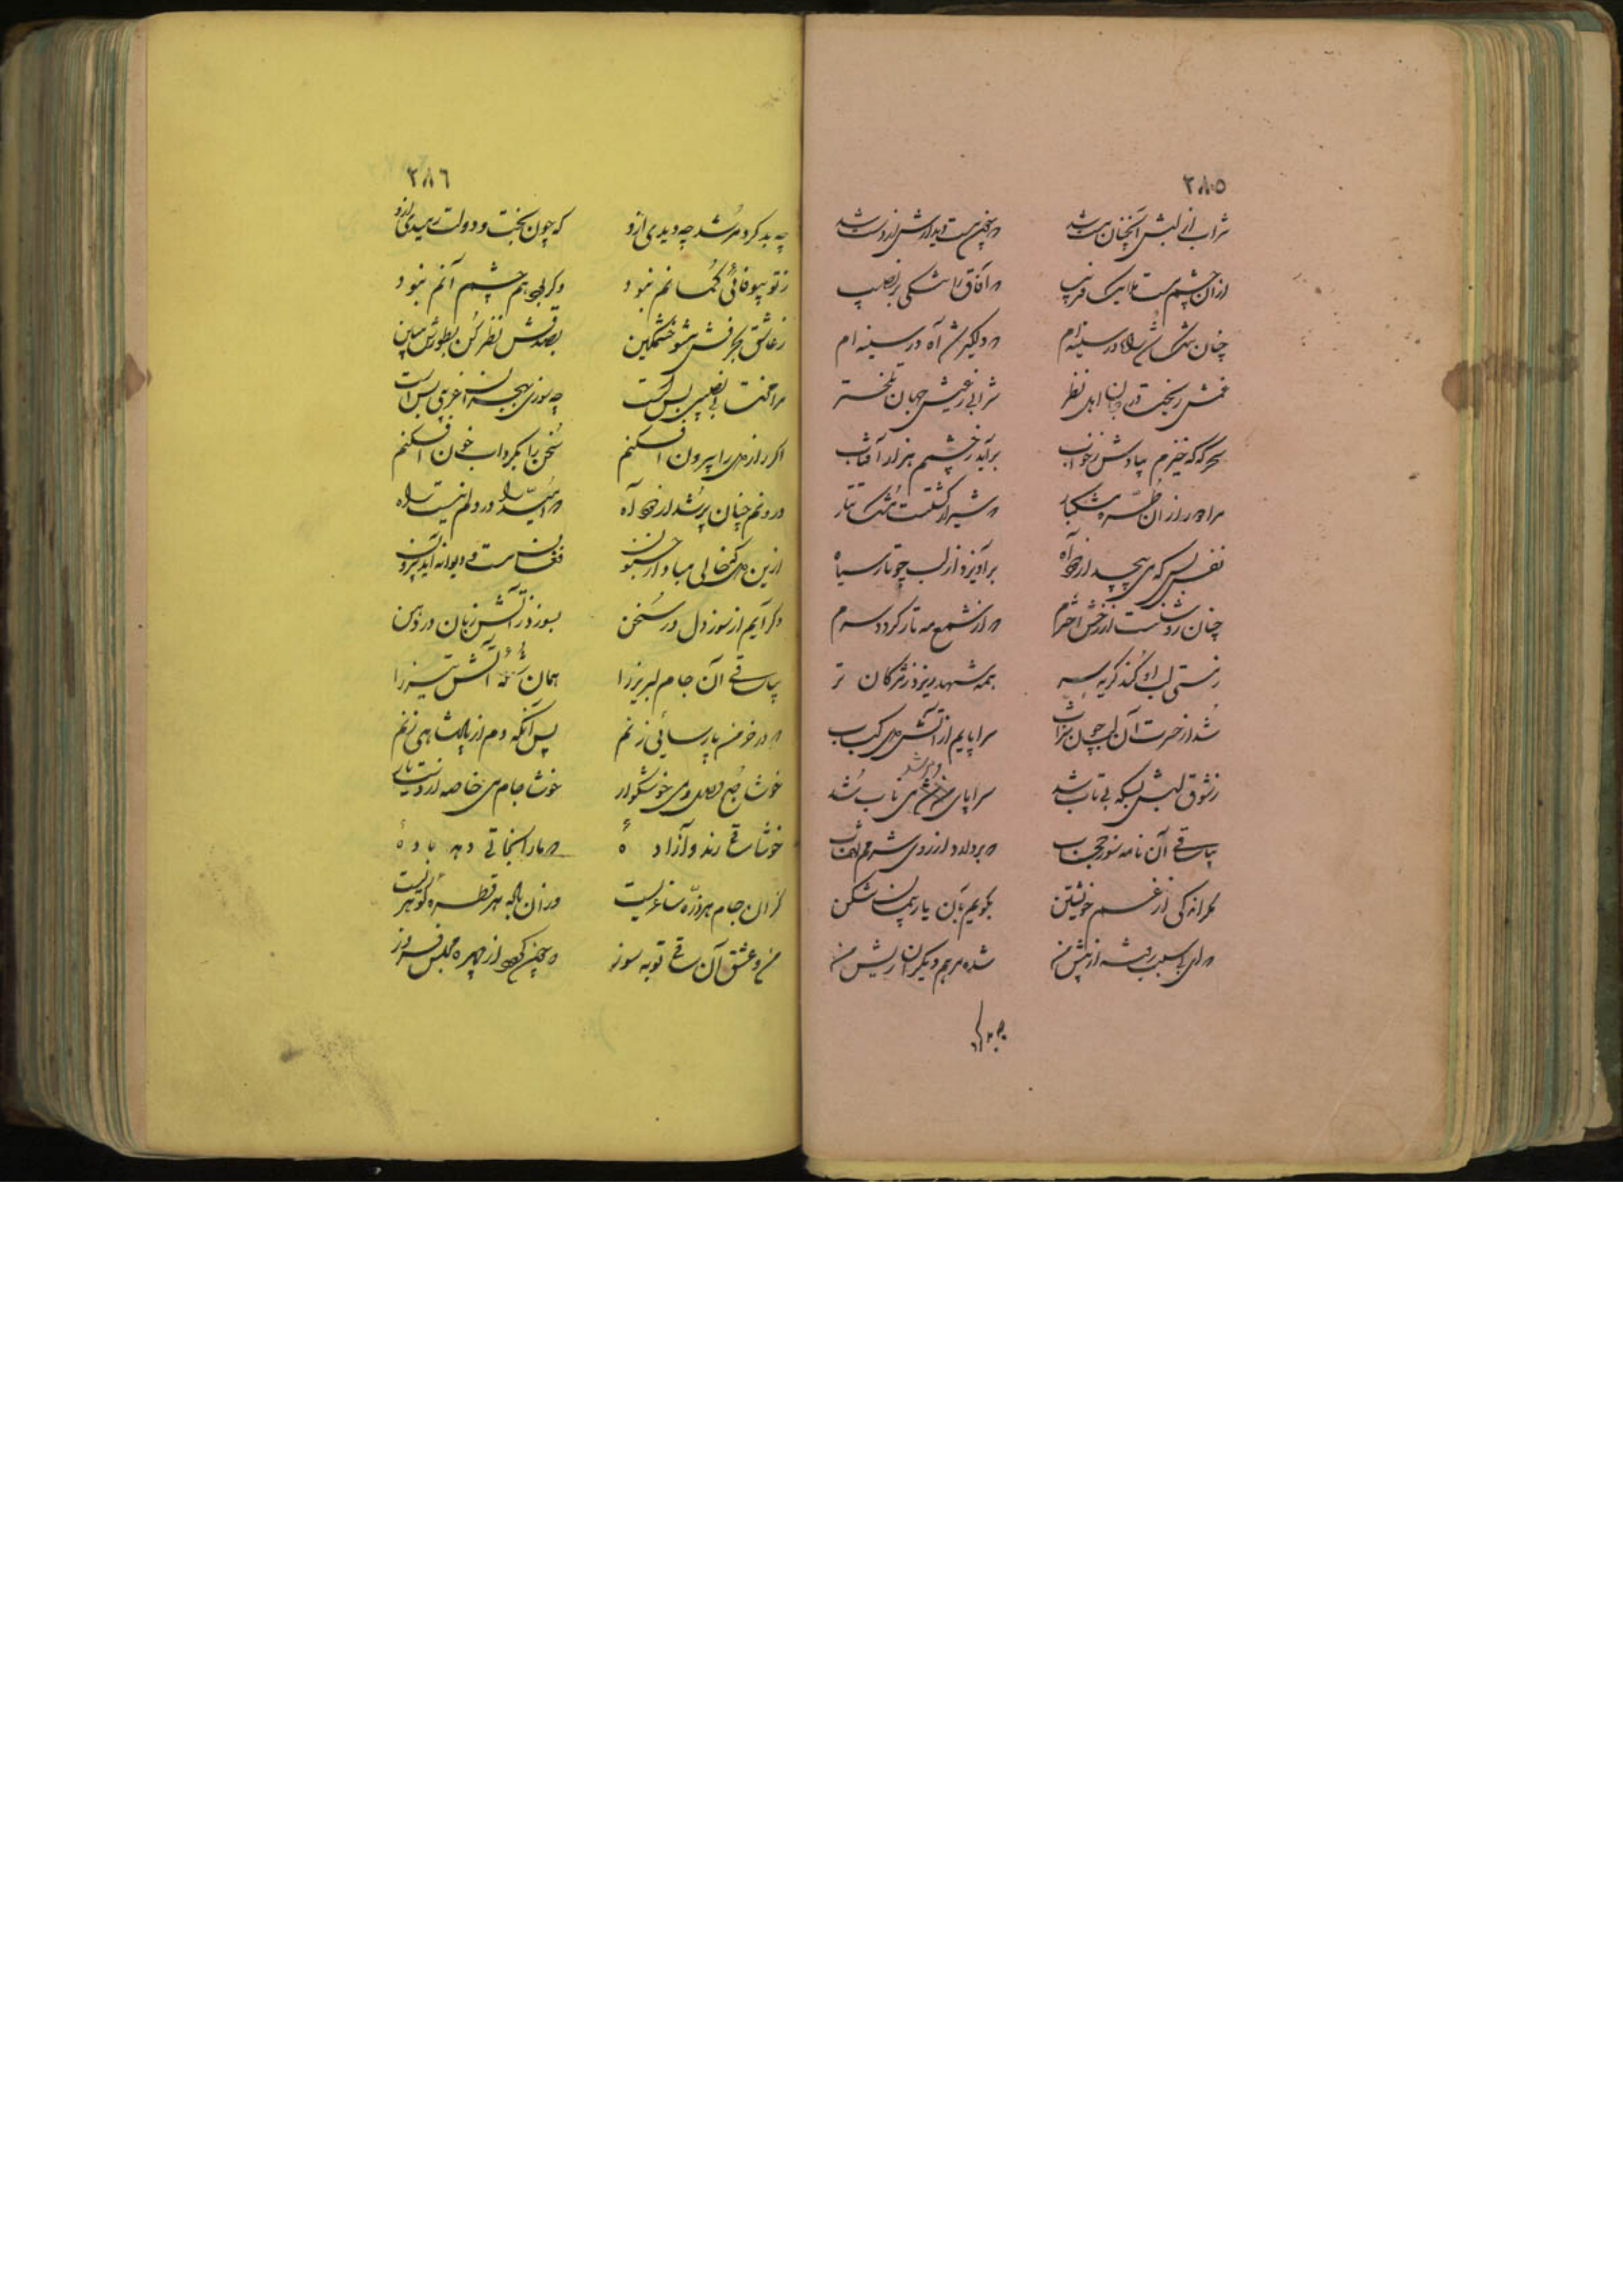 ٢٨٥
شراب از لبش آنچنان مست شد
ازان چشم مست ملایک فریب
که آفاق را شد شکیب
چنان شد در سینه‌ام
که دلگیر شد آه در سینه ام
غمش ریخت در جان اهل نظر
شرابی ز عیش جهان تلختر
سحرگه که خیزم بیادش ز خواب
برآید ز چشمم هزار آفتاب
مرا در ازان طره مشکبار
مشک تتار
نفس بس که می پیچد از آه
برآویزد از لب چو تار سیاه
چنان روشنست از رخش اخترم
که از شمع مه تار گردد سرم
ز مستی لب او کند گریه سر
همه شهد ریزد ز مژگان تر
شد از حسرت آن لب چون شراب
سراپایم از آتش دل کباب
ز شوق لبش بسکه بی تاب شد
سراپای من می ناب شد
بیا ساقی آن سوز حجاب
که بردارد از روی شرم نقاب
مگر اندکی از غم خویشتن
بگویم بآن یار پیمان شکن
که ای بی سبب رفته از پیش من
شده مرهم دیگران ریش من
چه بد کرد
٢٨٦
چه بد کرد مرشد چه دیدی ازو
که چون بخت و دولت رمیدی ازو
ز تو بیوفائی گمانم نبود
وگر بود هم چشم آنم نبود
ز عاشق بحرفش مشو خشمگین
بصدقش نظر کن بطورش مبین
مرا محنت بی نصیبی بس است
چه سوزی بهجر غریبی بس است
اگر راز دل را بیرون افکنم
سخن را بگرداب خون افکنم
درونم چنان پر شد از دود آه
که امید را در دلم نیست راه
ازین دل که خالی مباد از جنون
فغان مست و دیوانه آید برون
وگر آیم از سوز دل در سخن
بسوزد ز آتش زبان در دهن
بیا ساقی آن جام لبریز را
همان آتش تیز را
که در خرمن پارسائی زنم
پس آنگه دم از پادشاهی زنم
خوشا صبح وصل و می خوشگوار
خوشا جام می خاصه از دست یار
خوشا ساقی رند و آزاده
که مارا نجاتی دهد باده
کزان جام هر ذره ساغریست
وزان باده هر قطره کوثریست
من و عشق آن ساقی توبه سوز
که چون گردد از چهره مجلس فروز